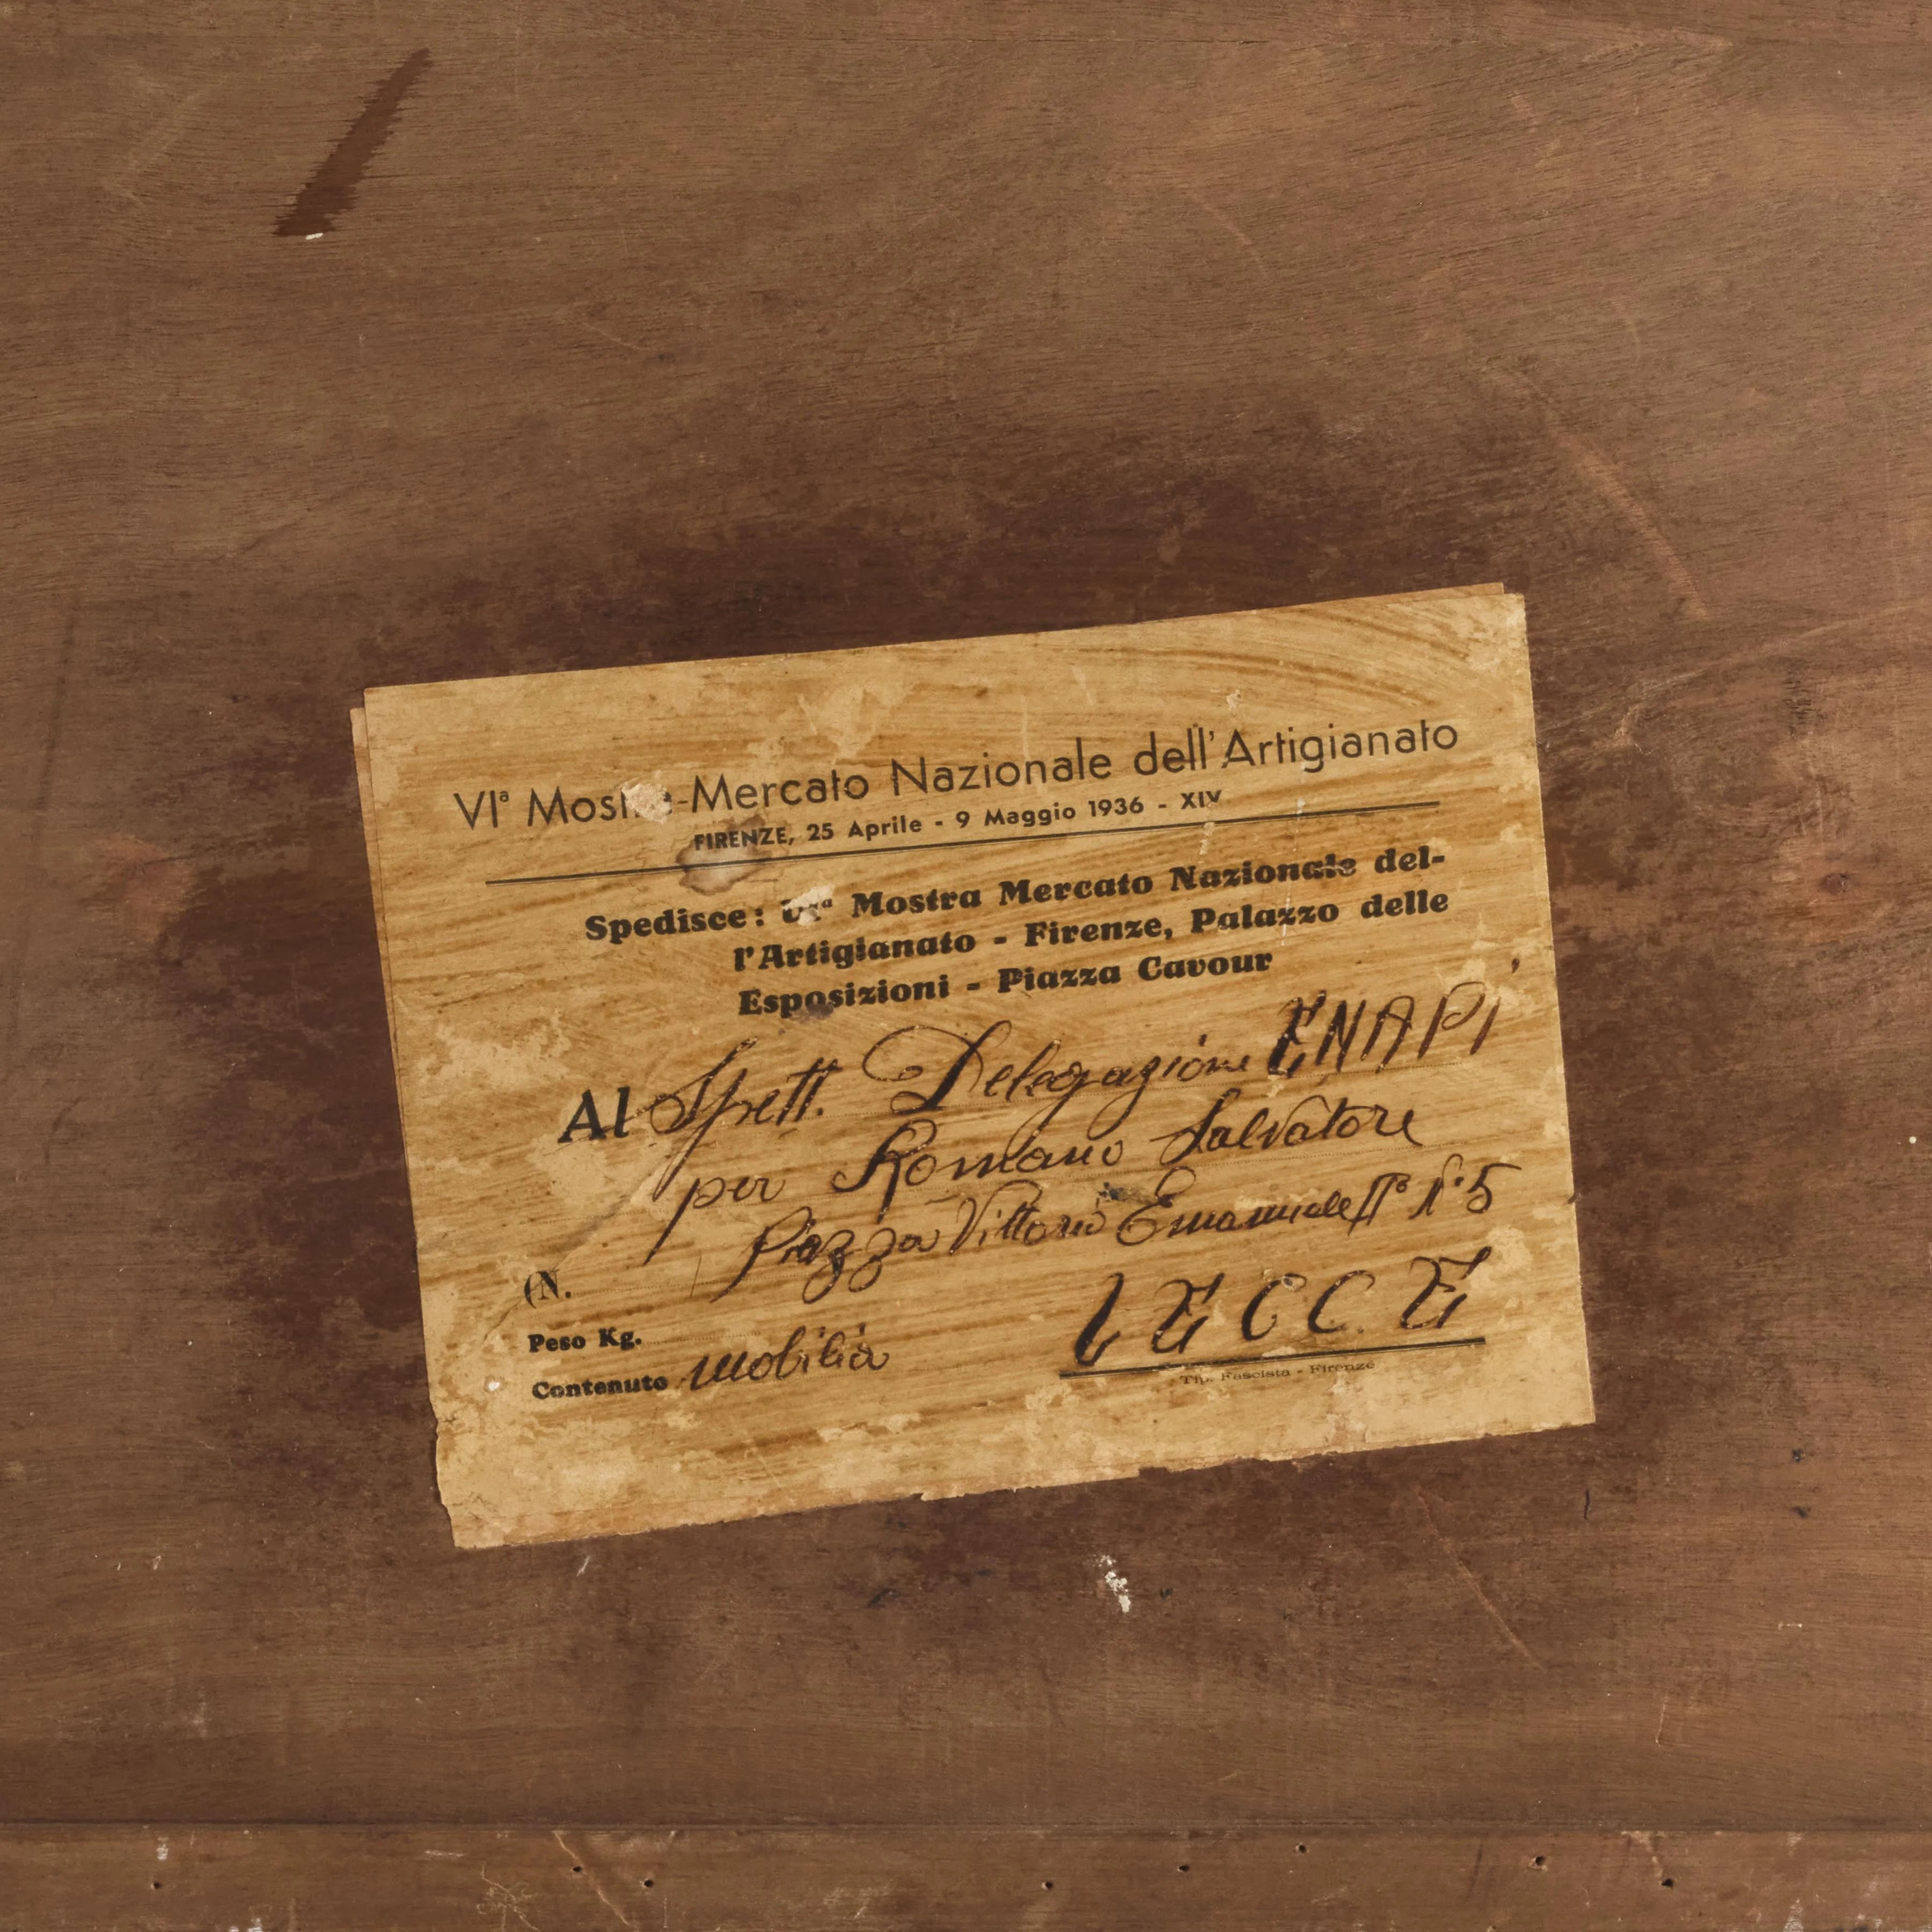 VIª Mostra-Mercato Nazionale dell'Artigianato
FIRENZE, 25 Aprile - 9 Maggio 1936 - XIV
Spedisce: VIª Mostra Mercato Nazionale del-
l'Artigianato - Firenze, Palazzo delle
Esposizioni - Piazza Cavour
Al Spett. Delegazione ENAPI
per Romano Salvatore
Piazza Vittorio Emanuele II° N° 5
(N.
LECCE
Peso Kg.
Contenuto mobilia
Tip. Fascista - Firenze